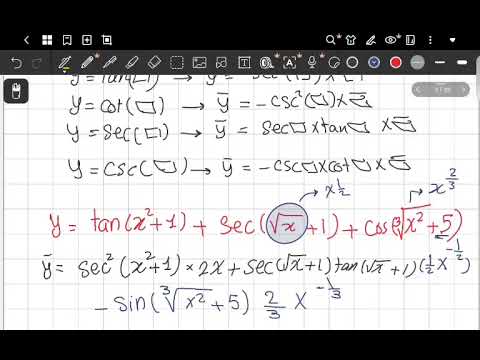 y = tan(□) → ȳ = sec²(□) × □̄
y = cot(□) → ȳ = -csc²(□) × □̄
y = sec(□) → ȳ = sec□ × tan□ × □̄
y = csc(□) → ȳ = -csc□ × cot□ × □̄
x^½ x^⅔
y = tan(x²+1) + sec(√x+1) + cos(∛x²+5)
ȳ = sec²(x²+1) × 2x + sec(√x+1) tan(√x+1) (½ x^-½)
- sin(∛x² + 5) ⅔ x^-⅓